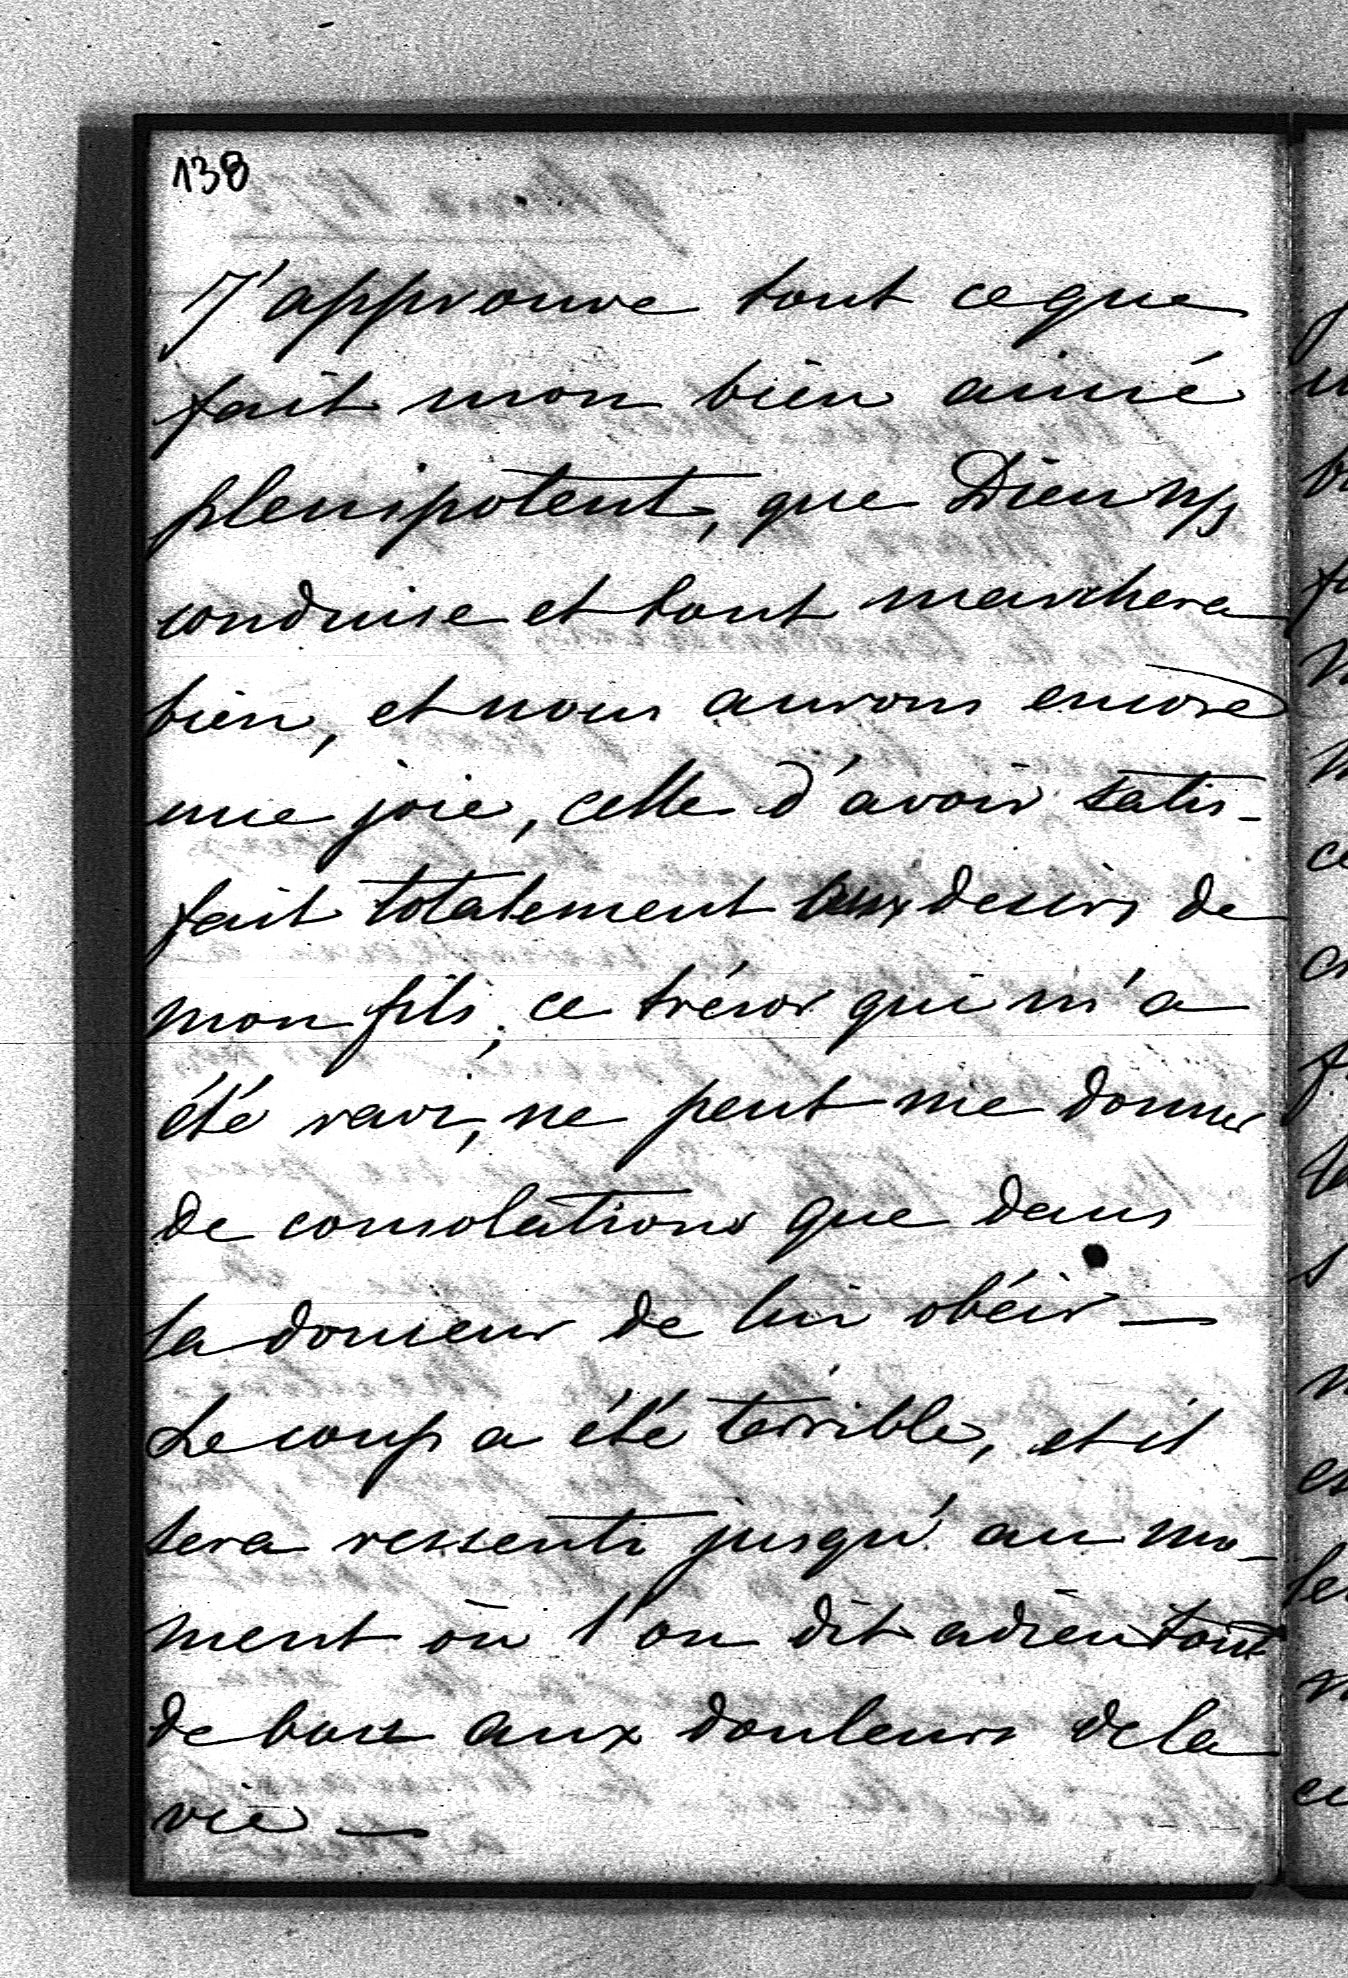 138
J'approuve tout ce que
fait mon bien aimé
plenipotent, que Dieu ns
conduise et tout marchera
bien, et nous aurons encore
une joie, celle d'avoir satis-
fait totalement aux desirs de
mon fils; ce trésor qui m'a
été ravi, ne peut me donner
de consolations que dans
la douceur de lui obéir —
Le coup a été terrible, et il
sera ressenti jusqu'au mo-
ment où l'on dit adieu tout
de bon aux douleurs de la
vie —